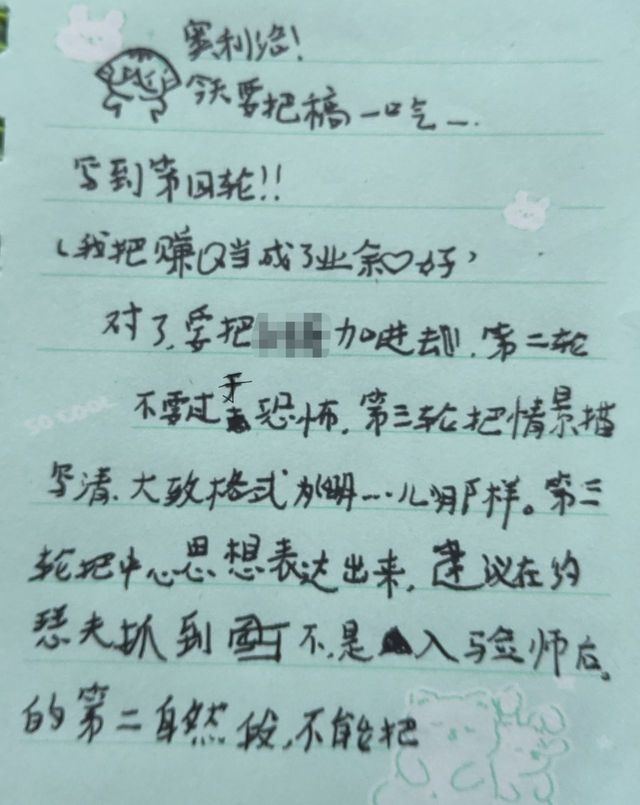 赛利洛！
今天要把稿一口气一.
写到第四轮!!
（我把赚口当成了业余♡好）
对了,要把加进去!!,第二轮
不要过于恐怖,第三轮把情景描
写清、大致格式为……儿那样。第三
轮把中心思想表达出来,建议在约
瑟夫抓到不是入殓师后。
的第二自然段,不能把
SO COOL